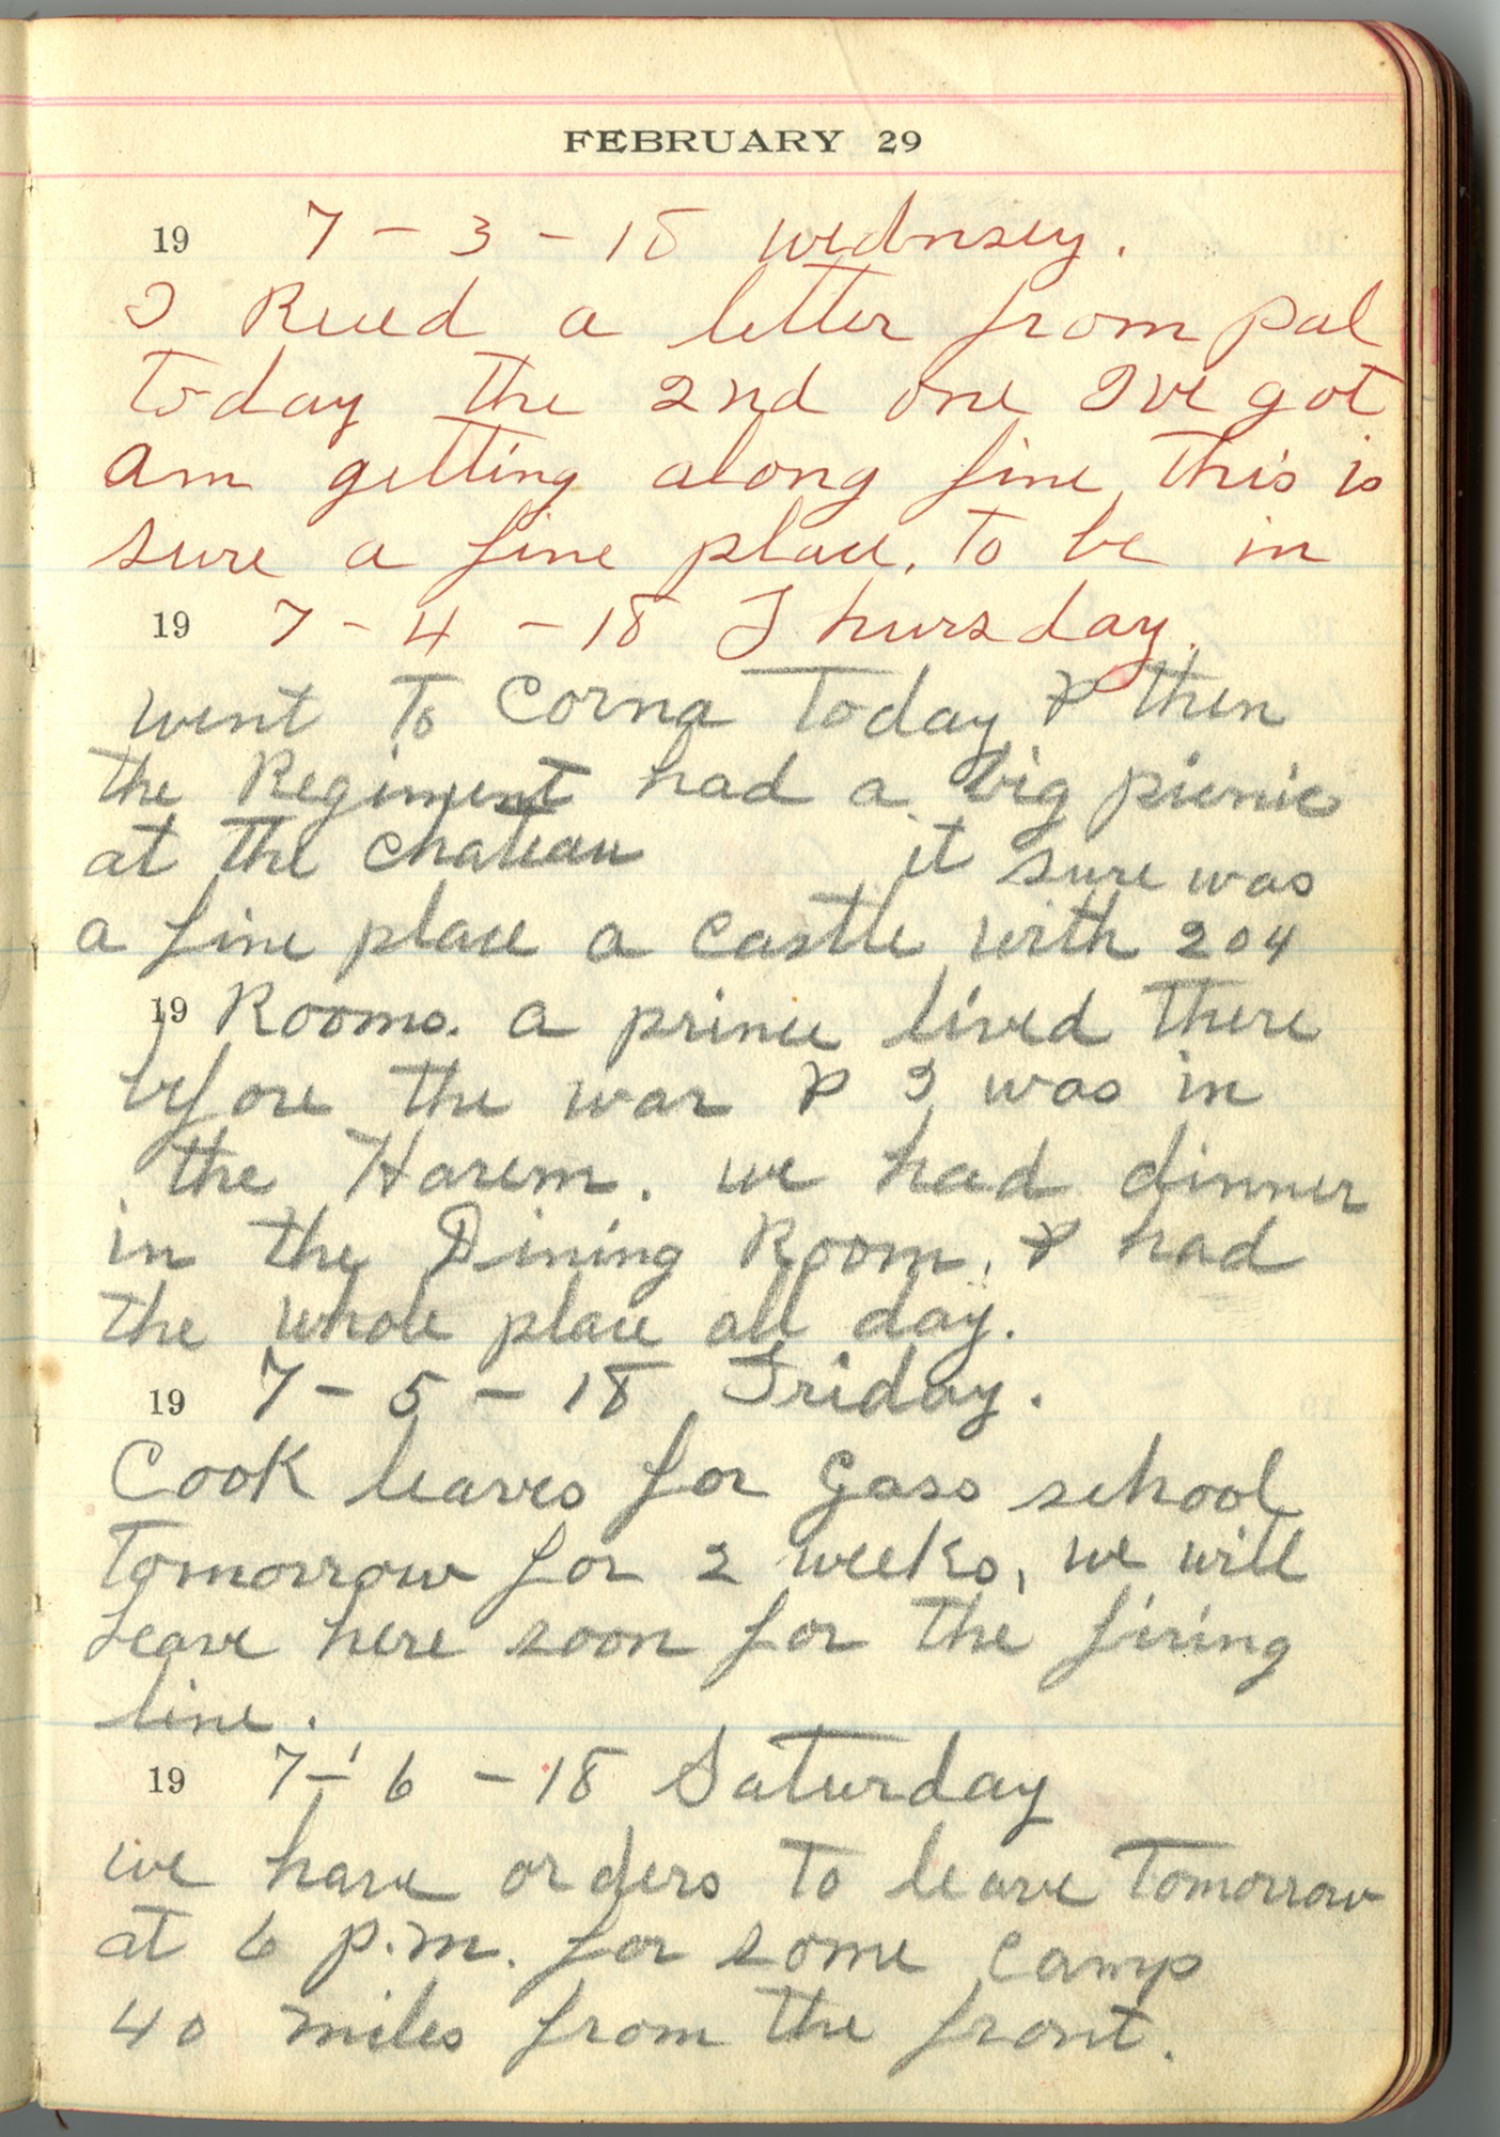 FEBRUARY 29
19 7-3-18 wednsey.
I Recd a letter from pal
today the 2nd one I've got
am getting along fine this is
sure a fine place. to be in
19 7-4-18 Thursday.
went To Corna Today & then
the Regiment had a big picnic
at the chateau it sure was
a fine place a castle with 204
19 Rooms. a prince lived there
before the war & I was in
the Harem. we had dinner
in the Dining Room, & had
the whole place all day.
19 7-5-18 Friday.
Cook leaves for Gass school
Tomorrow for 2 weeks, we will
Leave here soon for the firing
line.
19 7-6-18 Saturday
we have orders to leave Tomorrow
at 6 p.m. for some camp
40 miles from the front.